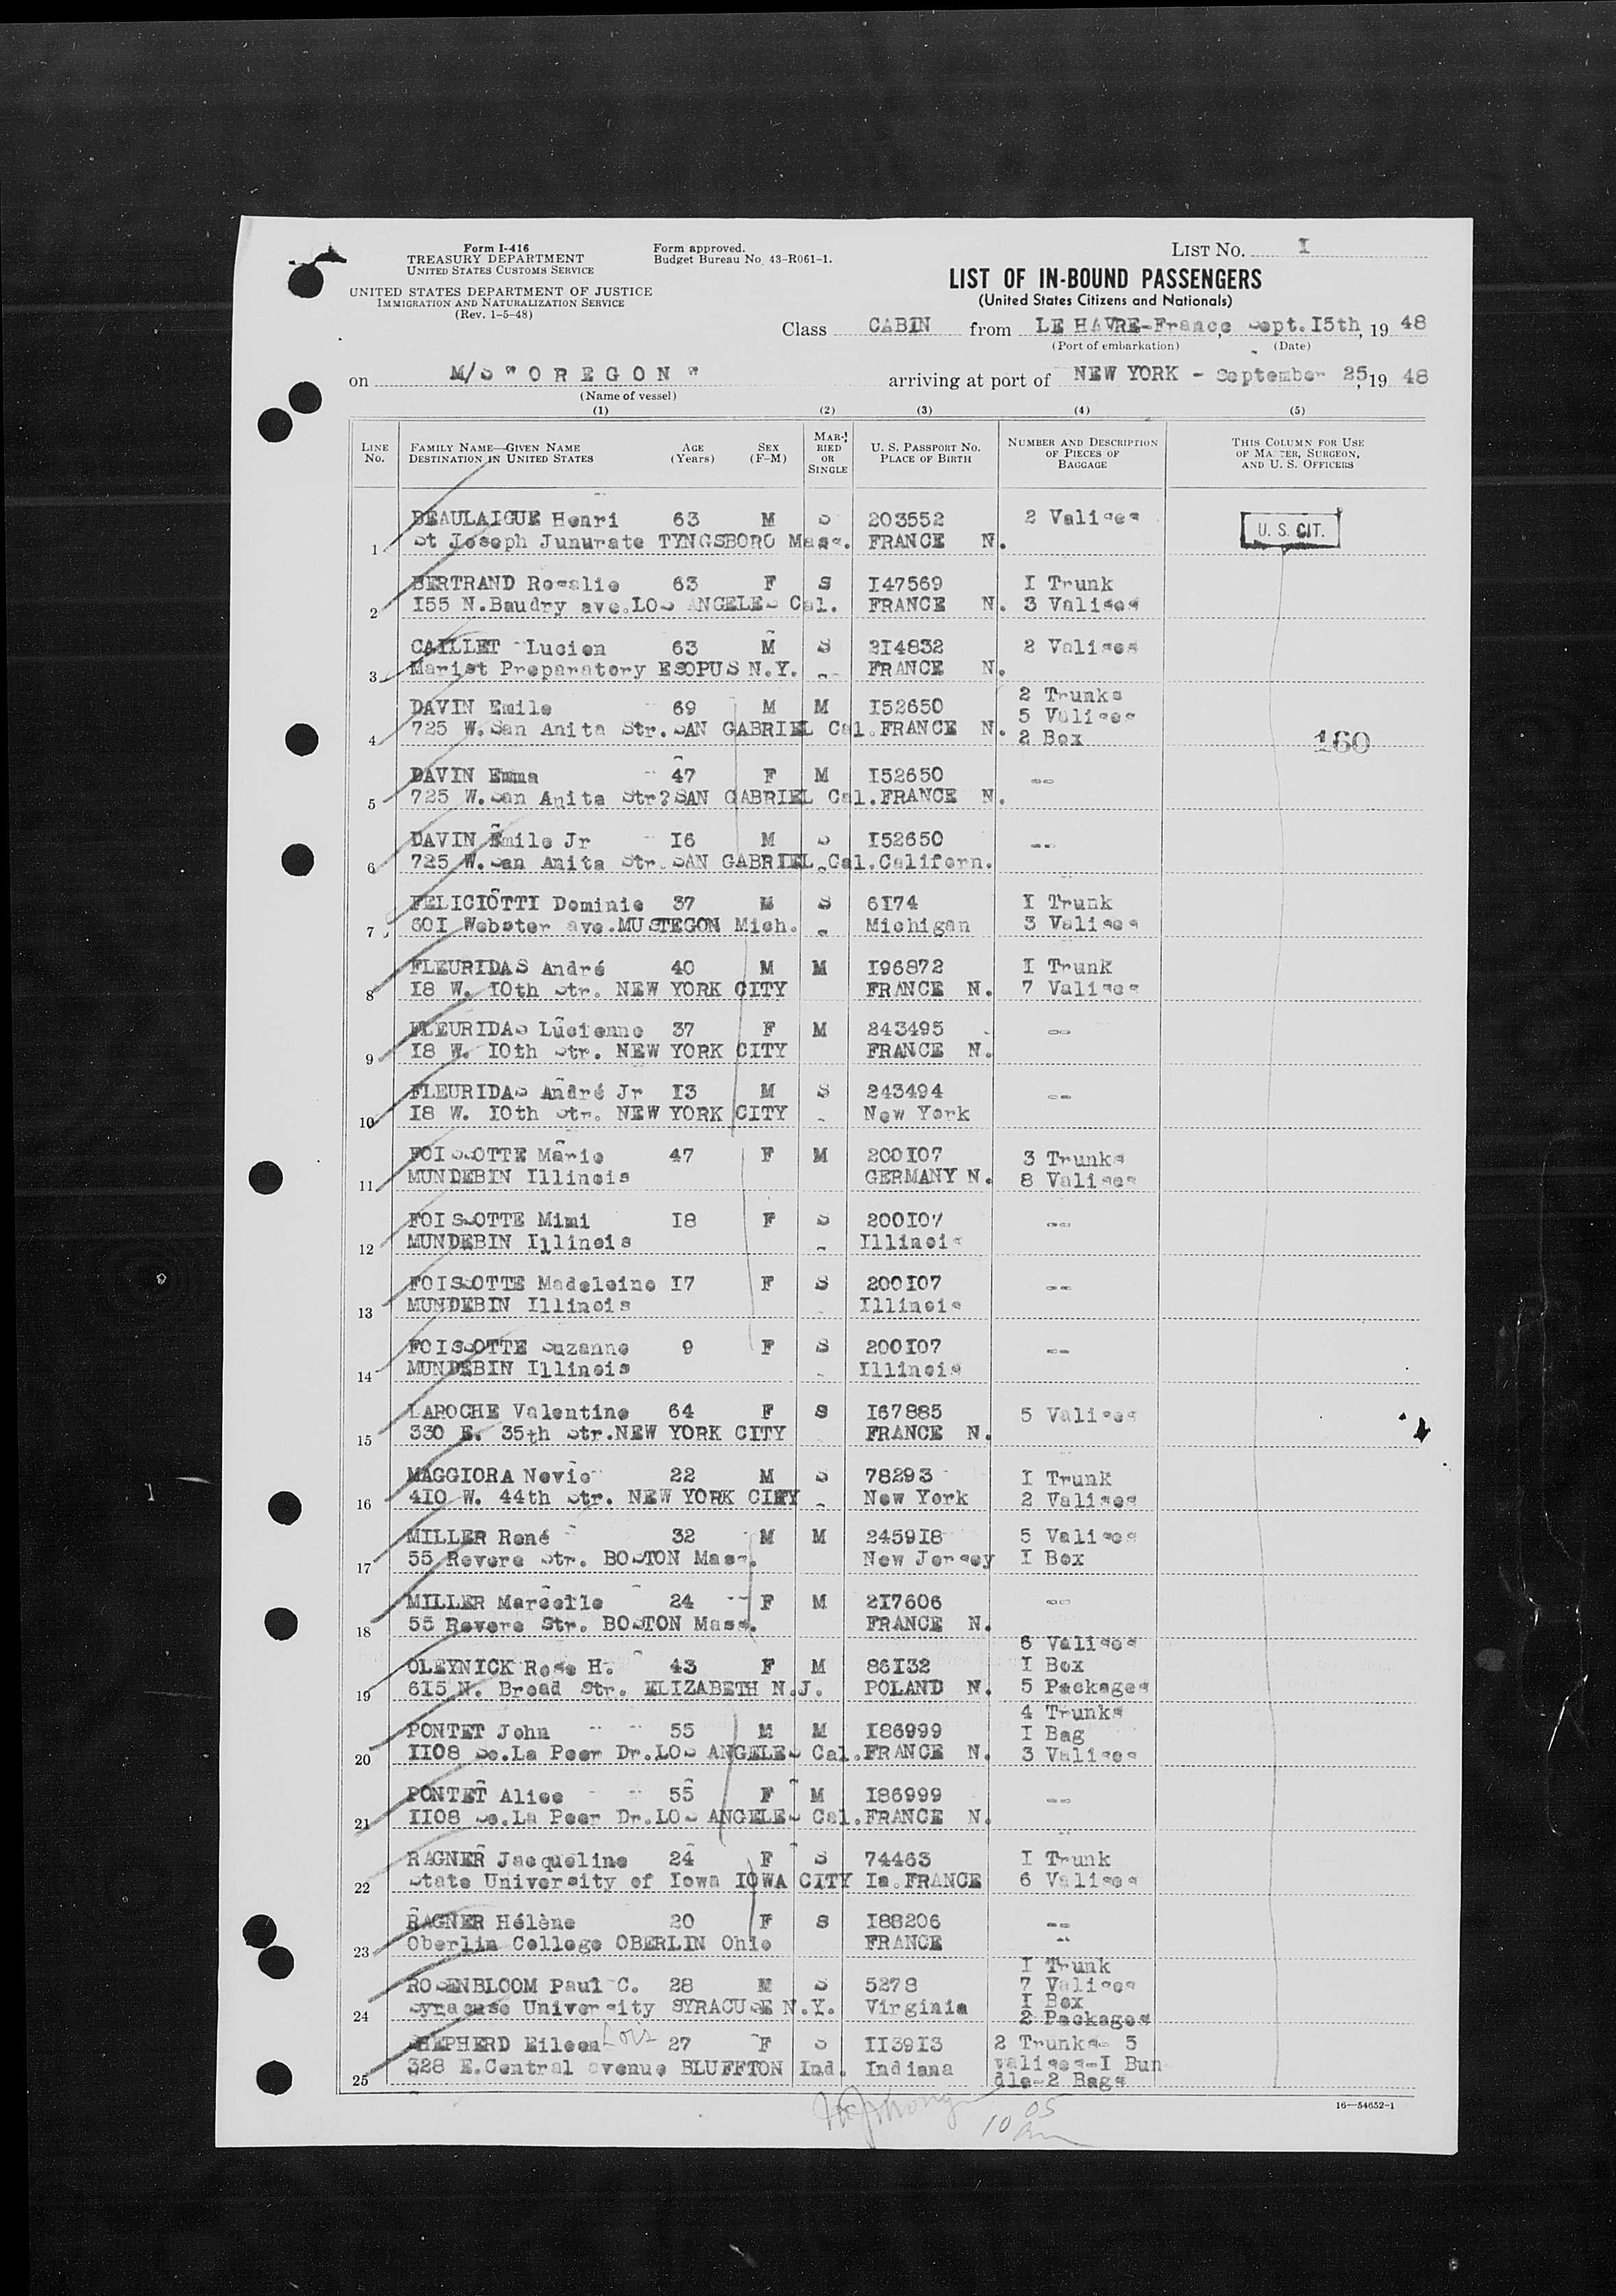 Form I-416
TREASURY DEPARTMENT
UNITED STATES CUSTOMS SERVICE
UNITED STATES DEPARTMENT OF JUSTICE
IMMIGRATION AND NATURALIZATION SERVICE
(Rev. 1-5-48)
Form approved.
Budget Bureau No. 43-R061-1.
LIST NO. I
LIST OF IN-BOUND PASSENGERS
(United States Citizens and Nationals)
Class CABIN from LE HAVRE-France, Sept.I5th, 19 48
(Port of embarkation) (Date)
on M/S "OREGON" arriving at port of NEW YORK - September 25, 19 48
(Name of vessel)
(1) (2) (3) (4) (5)
LINE No. FAMILY NAME—GIVEN NAME DESTINATION IN UNITED STATES AGE (Years) SEX (F-M) MARRIED OR SINGLE U. S. PASSPORT NO. PLACE OF BIRTH NUMBER AND DESCRIPTION OF PIECES OF BAGGAGE THIS COLUMN FOR USE OF MASTER, SURGEON, AND U. S. OFFICERS
BEAULAIGUE Henri 63 M S 203552 2 Valises U. S. CIT.
1 St Joseph Junurate TYNGSBORO Mass. FRANCE N.
BERTRAND Rosalie 63 F S I47569 I Trunk
2 I55 N.Baudry ave.LOS ANGELES Cal. FRANCE N. 3 Valises
CAILLET Lucien 63 M S 214832 2 Valises
3 Marist Preparatory ESOPUS N.Y. FRANCE N.
2 Trunks
DAVIN Emile 69 M M I52650 5 Valises
4 725 W.San Anita Str.SAN GABRIEL Cal.FRANCE N. 2 Box 160
DAVIN Emma 47 F M I52650 --
5 725 W.San Anita Str?SAN GABRIEL Cal.FRANCE N.
DAVIN Emile Jr I6 M S I52650 --
6 725 W.San Anita Str.SAN GABRIEL Cal.Californ.
FELICIOTTI Dominic 37 M S 6I74 I Trunk
7 60I Webster ave.MUSTEGON Mich. Michigan 3 Valises
FLEURIDAS André 40 M M I96872 I Trunk
8 I8 W. I0th Str. NEW YORK CITY FRANCE N. 7 Valises
FLEURIDAS Lucienne 37 F M 243495 --
9 I8 W. I0th Str. NEW YORK CITY FRANCE N.
FLEURIDAS André Jr I3 M S 243494 --
10 I8 W. I0th Str. NEW YORK CITY New York
FOISSOTTE Marie 47 F M 200I07 3 Trunks
11 MUNDEBIN Illinois GERMANY N. 8 Valises
FOISSOTTE Mimi I8 F S 200I07 --
12 MUNDEBIN Illinois Illinois
FOISSOTTE Madeleine I7 F S 200I07 --
13 MUNDEBIN Illinois Illinois
FOISSOTTE Suzanne 9 F S 200I07 --
14 MUNDEBIN Illinois Illinois
LAROCHE Valentine 64 F S I67885 5 Valises
15 330 E. 35th Str.NEW YORK CITY FRANCE N.
MAGGIORA Nevio 22 M S 78293 I Trunk
16 4I0 W. 44th Str. NEW YORK CITY New York 2 Valises
MILLER René 32 M M 2459I8 5 Valises
17 55 Revere Str. BOSTON Mass. New Jersey I Box
MILLER Marcelle 24 F M 2I7606 --
18 55 Revere Str. BOSTON Mass. FRANCE N.
6 Valises
OLEYNICK Rose H. 43 F M 86I32 I Box
19 6I5 N. Broad Str. ELIZABETH N.J. POLAND N. 5 Packages
4 Trunks
PONTET John 55 M M I86999 I Bag
20 II08 So.La Peer Dr.LOS ANGELES Cal.FRANCE N. 3 Valises
PONTET Alice 55 F M I86999 --
21 II08 So.La Peer Dr.LOS ANGELES Cal.FRANCE N.
RAGNER Jacqueline 24 F S 74463 I Trunk
22 State University of Iowa IOWA CITY Ia.FRANCE 6 Valises
RAGNER Hélène 20 F S I88206 --
23 Oberlin College OBERLIN Ohio FRANCE
I Trunk
ROSENBLOOM Paul C. 28 M S 5278 7 Valises
I Box
24 Syracuse University SYRACUSE N.Y. Virginia 2 Packages
SHEPHERD Eileen Lois 27 F S II39I3 2 Trunks- 5
25 328 E.Central avenue BLUFFTON Ind. Indiana valises-I Bun
dle-2 Bags
16—54652-1
10 05